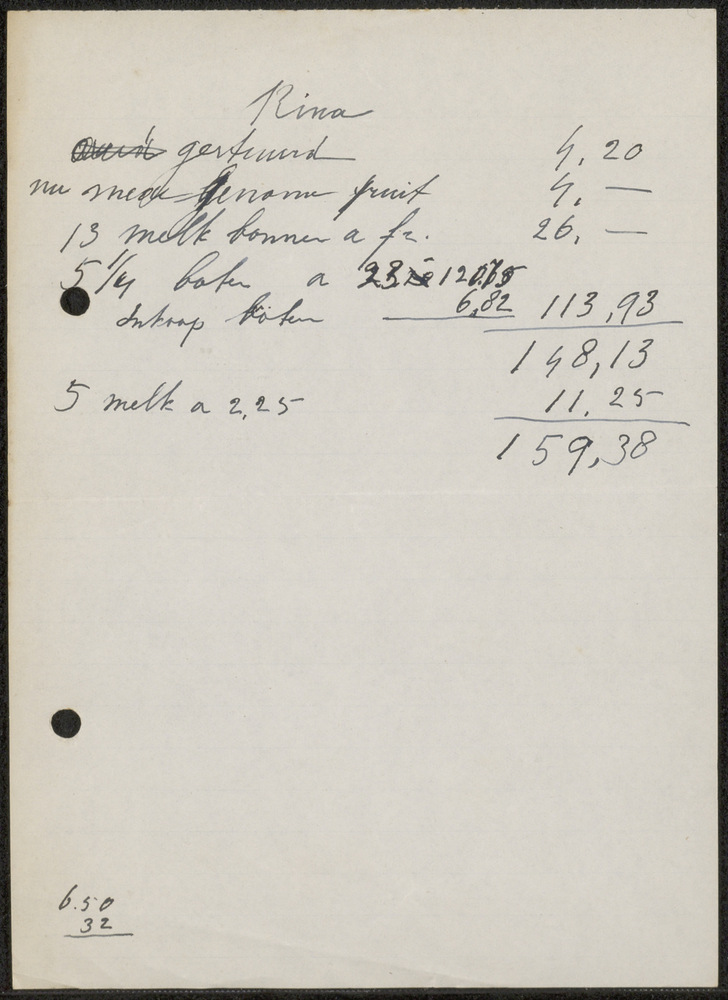 Rina
gestuurd 4,20
nu mede genomen fruit 4,—
13 melk bonnen a f2. 26,—
5 1/4 boter a 23 120.75
Inkoop boter 6,82 113,93
148,13
5 melk a 2,25 11,25
159,38
6.50
32